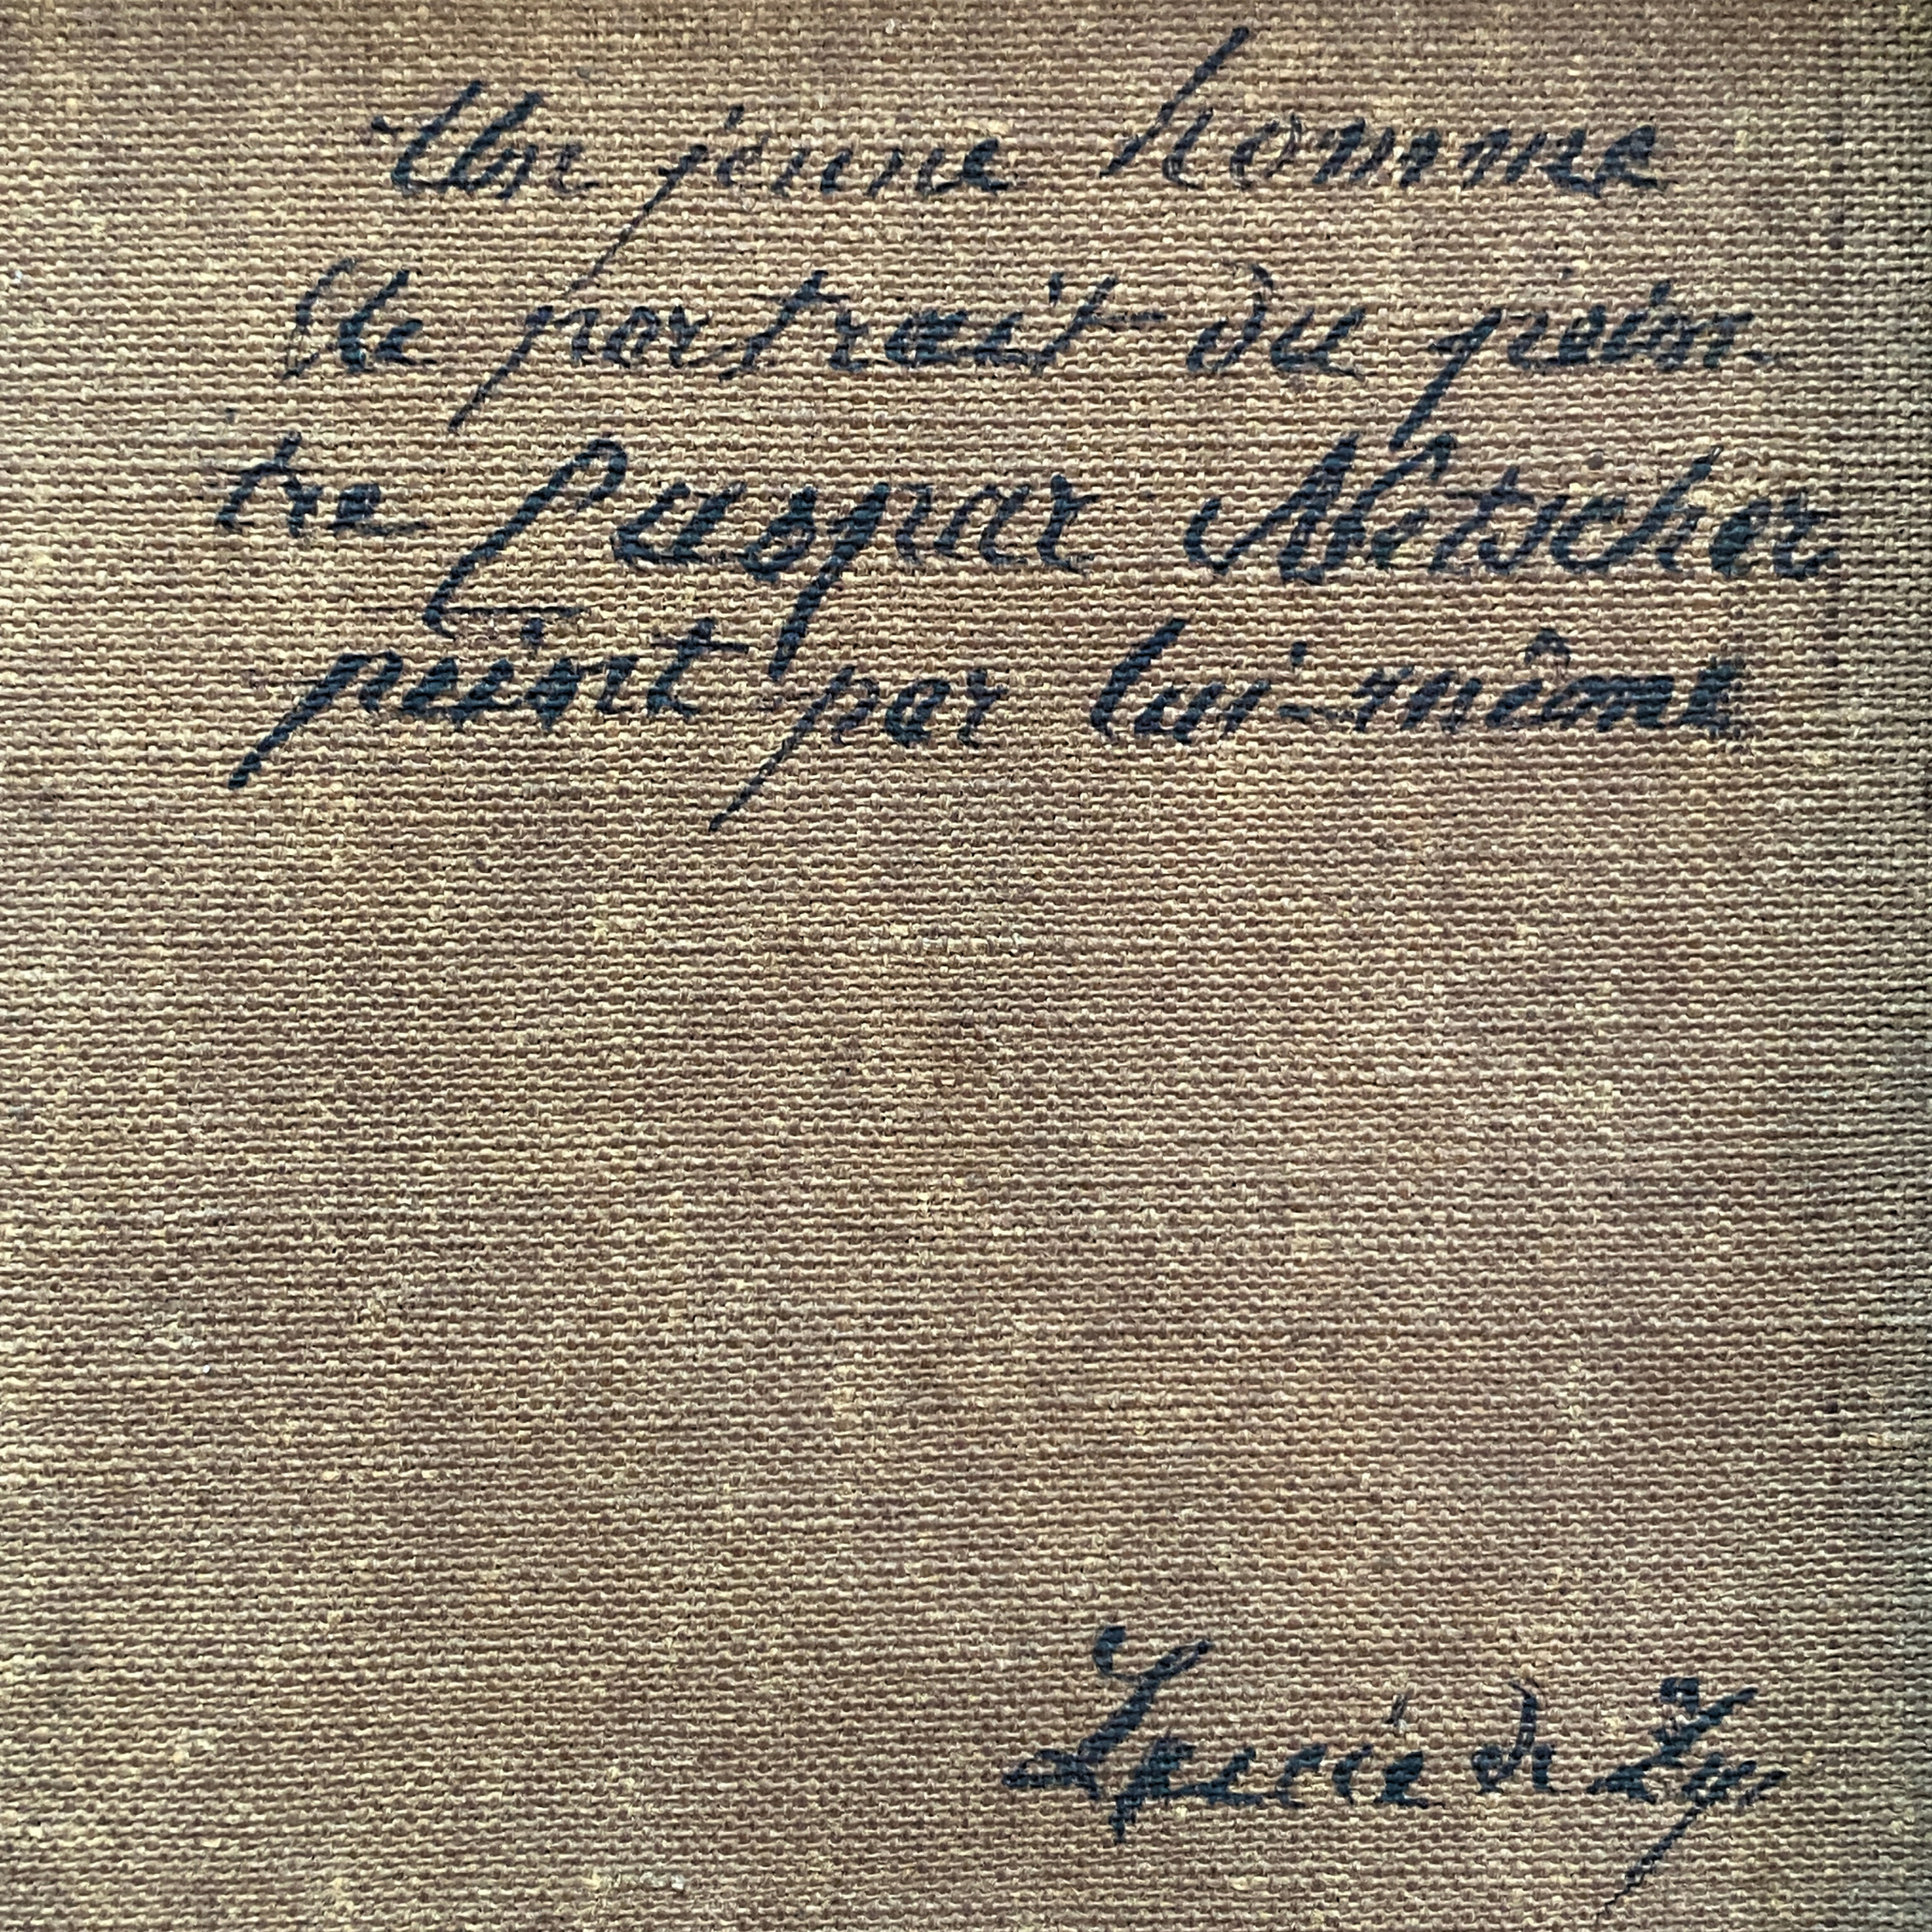 Un jeune homme
Le portrait du pein-
tre Caspar Netscher
peint par lui-même
de